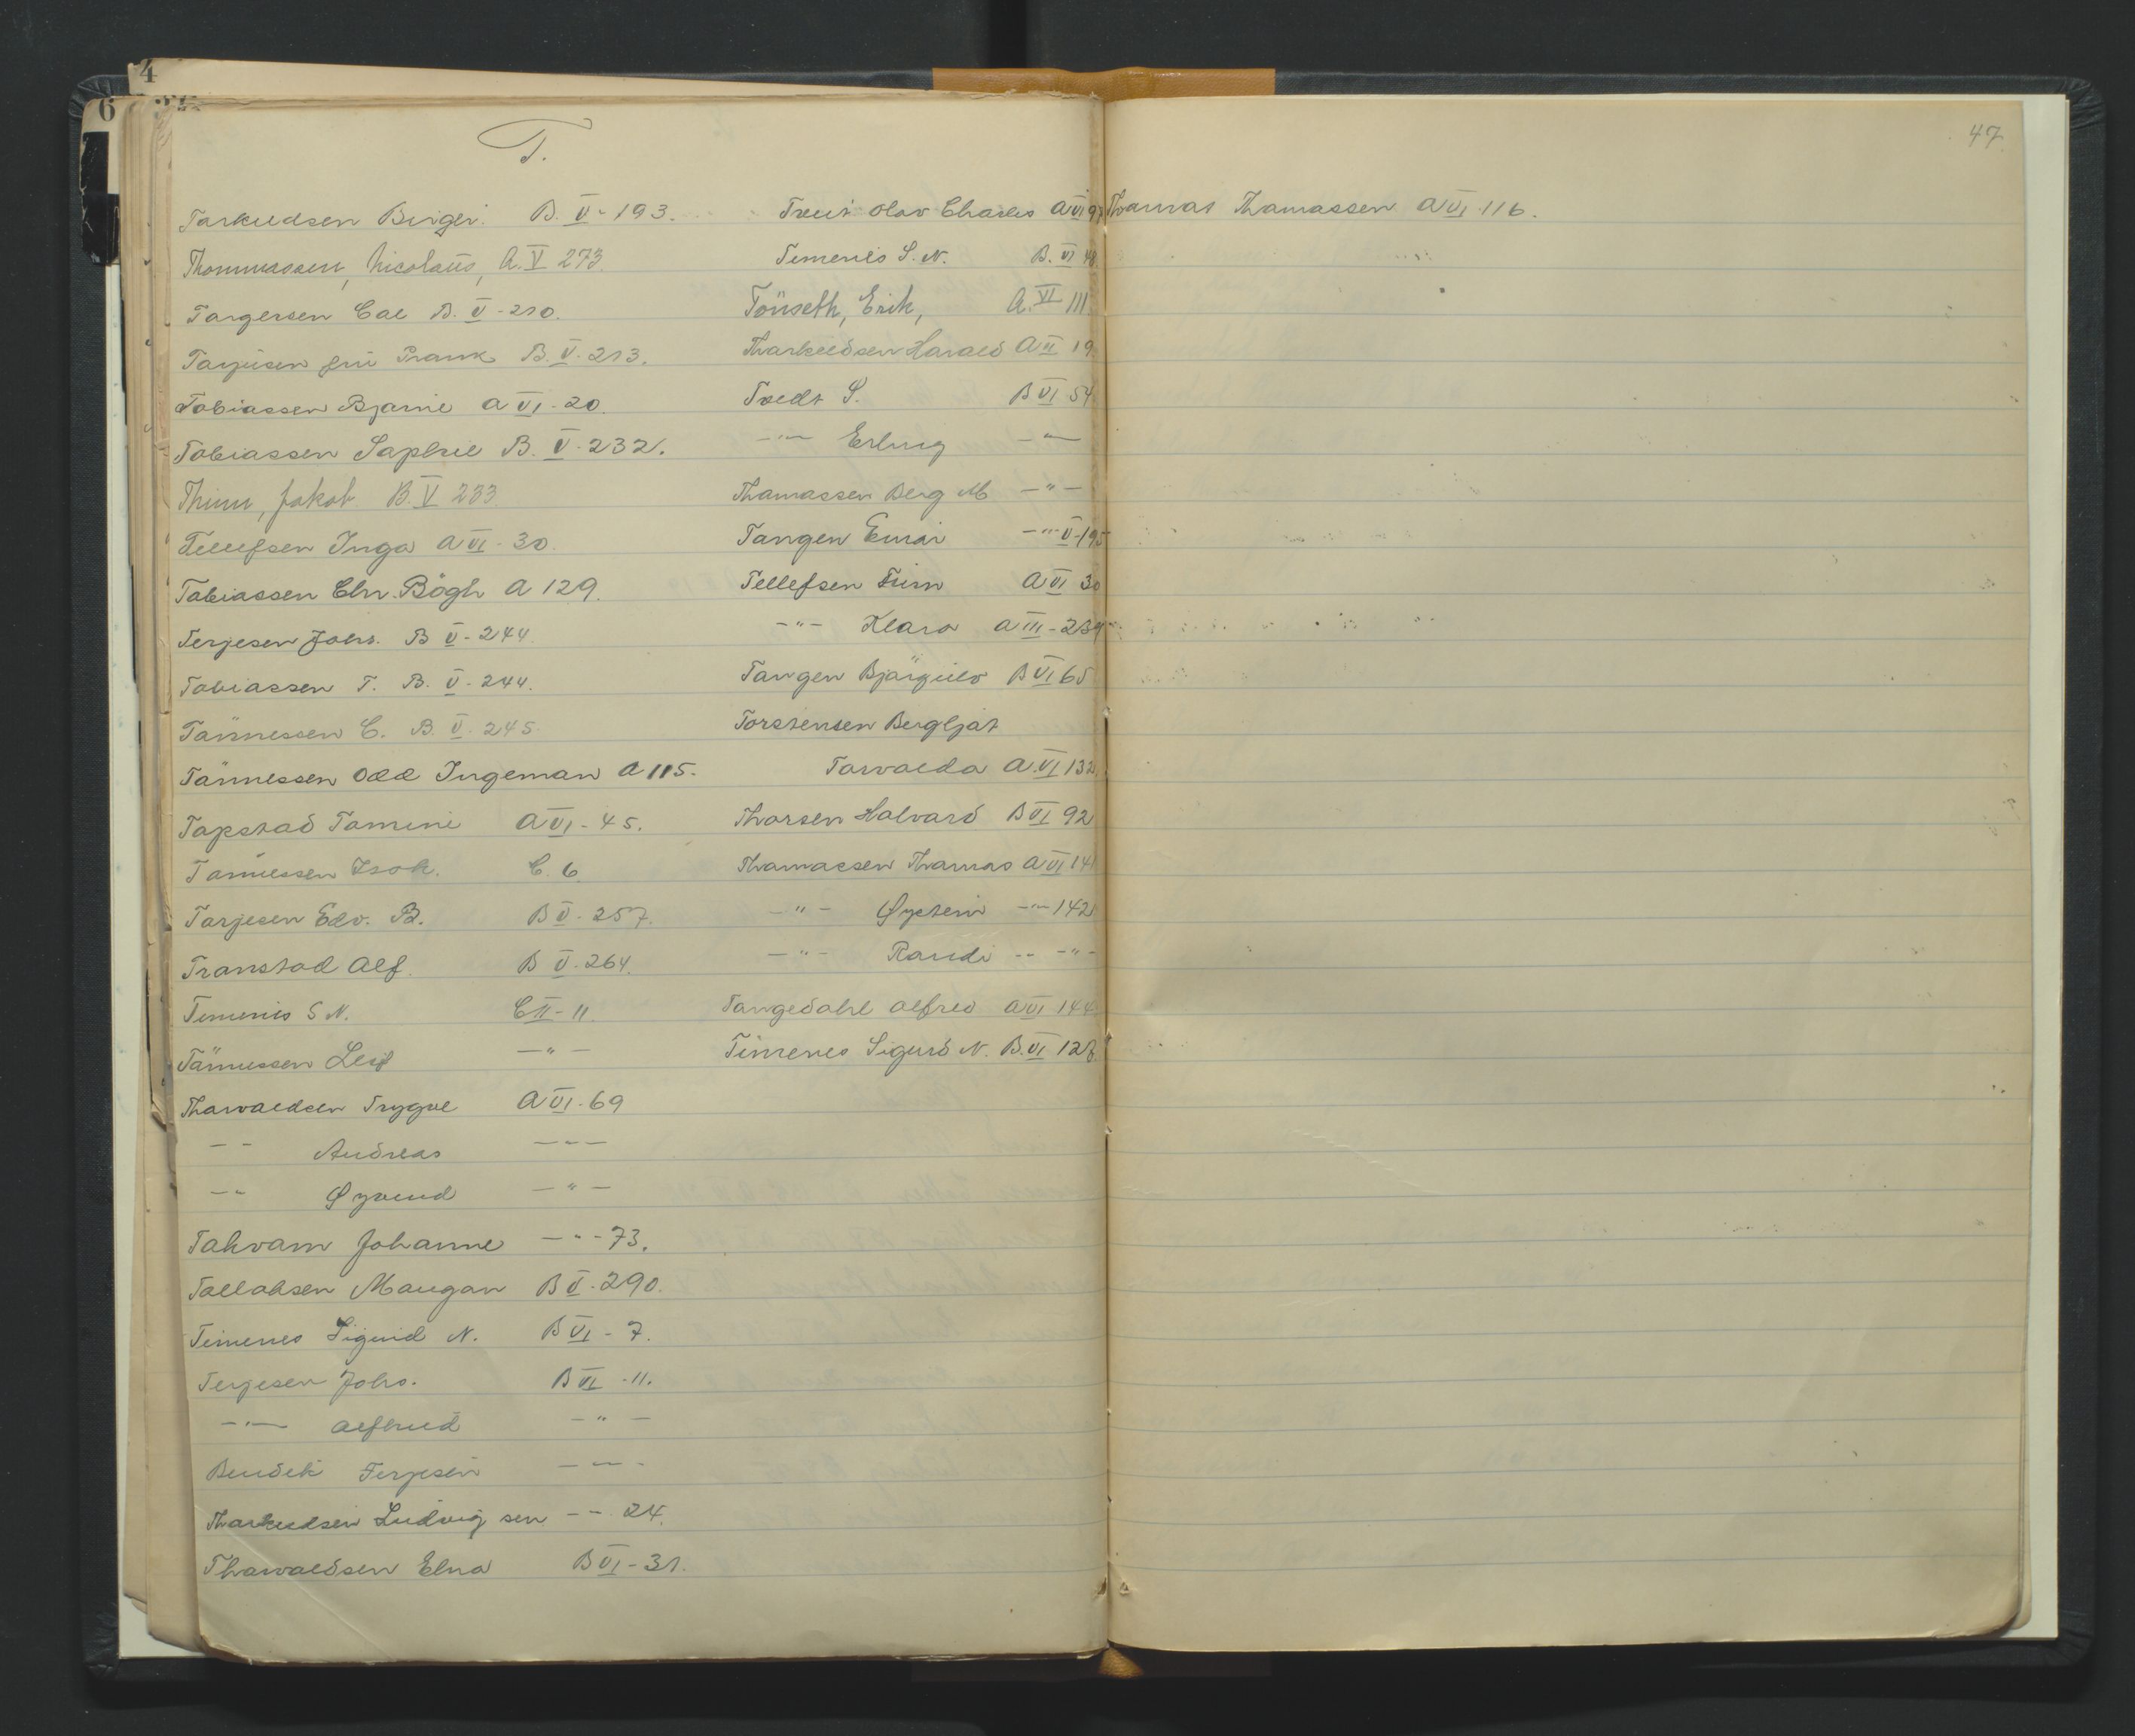 T.
47
Torkildsen Birger. B. V - 193.
Thommassen, Nicolaus, A. V 273.
Torgersen Carl B. V - 210.
Torjusen fru Frank B. V. 213.
Tobiassen Bjarne A VI - 20.
Tobiassen Sophie B. V - 232.
Thim, Jakob B. V 233.
Tellefsen Inga A VI - 30.
Tobiassen Chr. Bögh A 129.
Terjesen Johs. B V - 244.
Tobiassen T. B. V - 244.
Tönnessen C. B. V. 245.
Tönnessen Odd Ingeman A 115.
Topstad Tomine A VI - 45.
Tönnessen Isak. C. 6.
Torjesen Edv. B. B V - 257.
Tronstad Alf. B V - 264.
Timenes S N. C II - 11.
Tönnessen Leif — " —
Thorvaldsen Trygve A VI - 69
— " Andreas — " —
— " Øyvind — " —
Takvam Johanne — " - 73.
Tallaksen Maugan B V - 290.
Timenes Sigurd N. B VI - 7.
Terjesen Johs. B VI - 11.
— " — Alfhild — " —
Bendik Terjesen — " —
Thorkildsen Ludvig sen — " 24.
Thorvaldsen Elna B VI - 31.
Tveit Olav Charles A VI 97
Timenes S. N. B. VI 48.
Tönseth, Erik, A. VI 111
Thorkildsen Harald A II 19
Tvedt S. B VI 54
— " — Erling — " —
Thomassen Berg M — " —
Tangen Einar — " — V - 195
Tellefsen Finn A VI 30
— " — Klara A III - 239
Tangen Björgulv B VI 65
Torstensen Bergljot
Torvalda A. VI 132
Thorsen Halvard B VI 92
Thomassen Thomas A VI 141
— " — Øystein — " — 142
— " — Randi — " —
Tangedahl Alfred A VI 144
Timenes Sigurd N. B. VI 128.
Thomas Thomassen A VI 116.